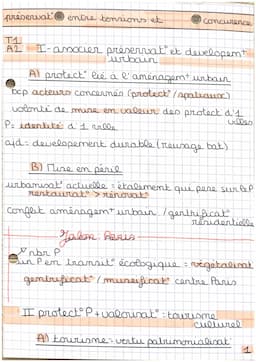 préservat° entre tensions et concurence
T1
A2 I- associer préservat° et developem^t
urbain
A) protect° lié à l'aménagem^t urbain
bcp acteurs concernés (protect°/spatiaux)
volonté de mise en valeur des protect d'1
villes
P= identité d'1 ville
ajd: developement durable (
A) Mise en péril
urbanisat° actuelle = étalement qui pèse sur le P
restaurat° > rénovat°
conflit aménagem^t urbain / gentrificat°
résidentielle
Jalon Paris
nbr P
un P en transit° écologique = végétalisat°
gentrificat° / museificat° centre Paris
II protect° P + valorisat°: tourisme
culturel
A) tourisme: vertu patrimonialisat°
1